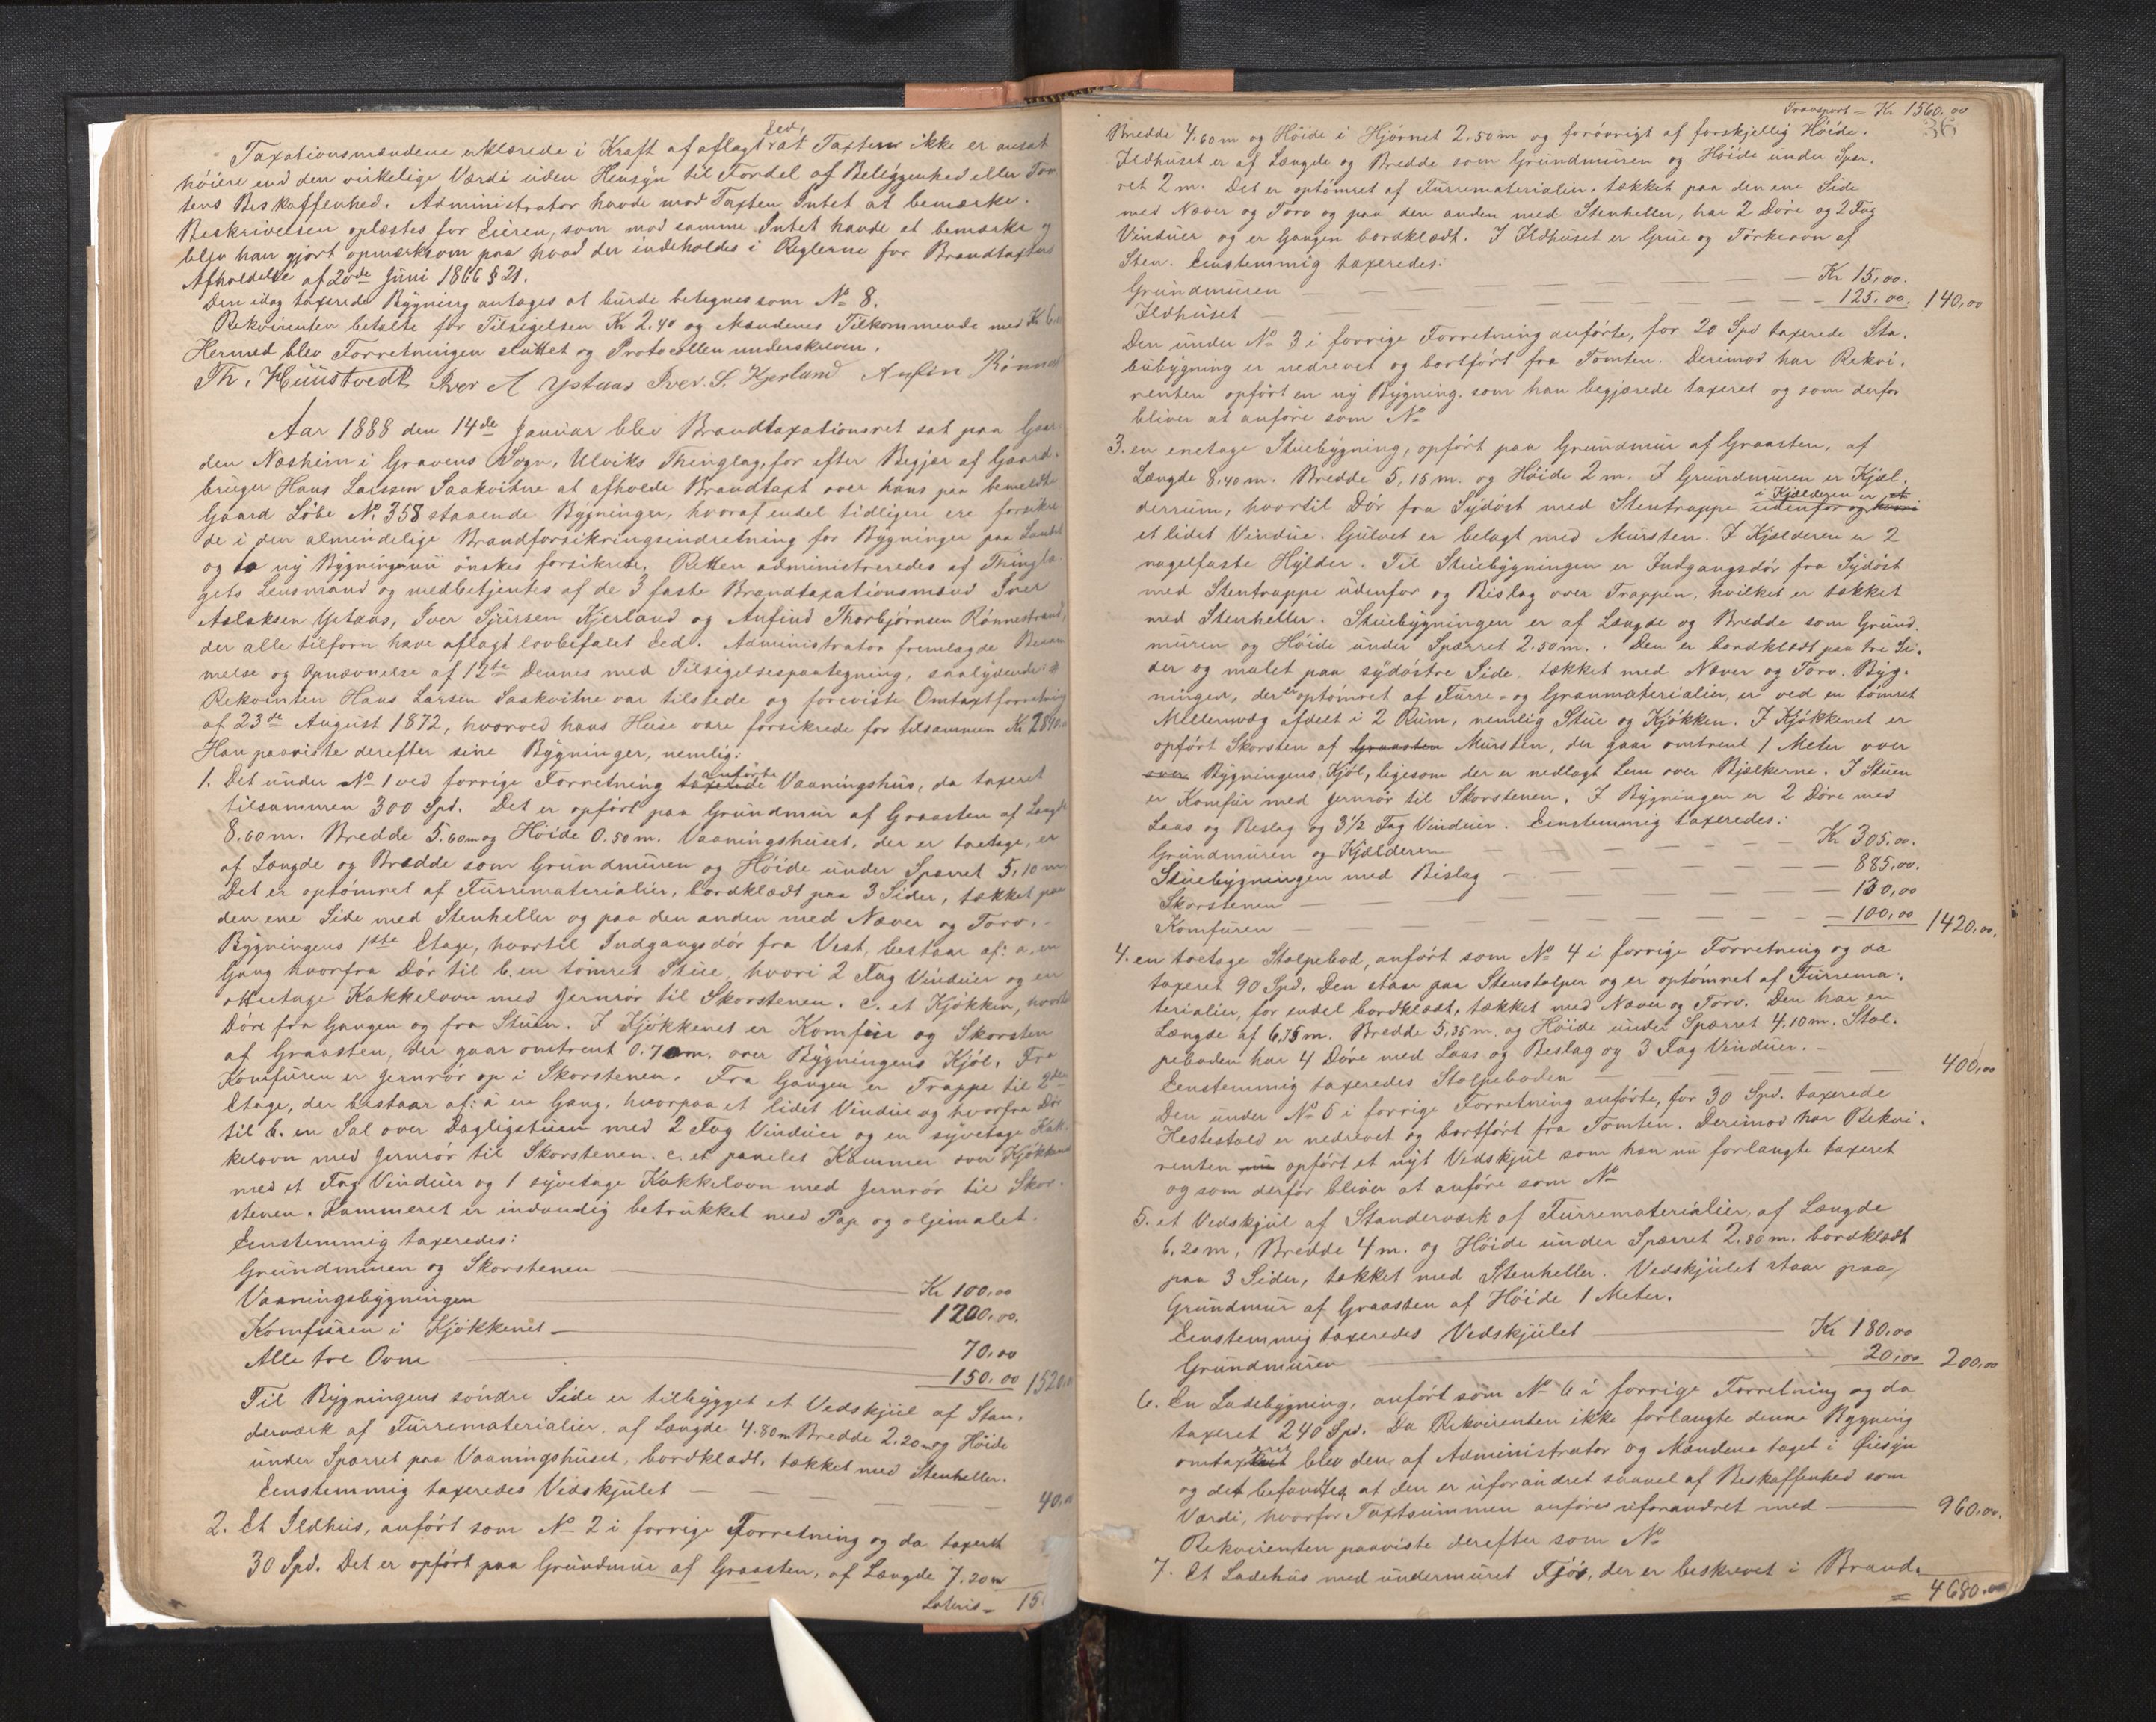 Taxationsmændene erklærede i Kraft af aflagt Eed, at Taxten ikke er ansat
høiere end den virkelige Værdi uden Hensyn til Fordel af Beliggenhed eller Tom
tens Beskaffenhed. Administrator havde mod Taxten Intet at bemærke.
Beskrivelsen oplæstes for Eieren, som mod samme Intet havde at bemærke og
blev han gjort opmærksom paa hvad der indeholdes i Reglerne for Brandtaxters
Afholdelse af 20de Juni 1866 § 21.
Den idag taxerede Bygning antages at burde betegnes som No 8.
Rekvirenten betalte for Tilsigelsen Kr 2.40 og Mændenes Tilkommende med Kr 6
Hermed blev Forretningen sluttet og Protocollen underskreven.
Th. Hüüstvedt Iver A Ystaas Iver S. Kjerland Anfin Rønne
Aar 1888 den 14de Januar blev Brandtaxationsret sat paa Gaar
den Næsheim i Gravens Sogn, Ulviks Thinglag, for efter Begjær af Gaard-
bruger Hans Larssen Saakvitne at afholde Brandtaxt over hans paa bemeldte
Gaard Løbe No 358 staaende Bygninger, hvoraf endel tidligere ere forsikre
de i den almindelige Brandforsikringsindretning for Bygninger paa Landet
og ny Bygning nu ønskes forsikrede. Retten administreredes af Thingla
gets Lensmand og medbetjentes af de 3 faste Brandtaxationsmænd Iver
Aslaksen Ystaas, Iver Sjursen Kjerland og Anfind Thorbjørnsen Rønnestrand,
der alle tilforn have aflagt lovbefalet Eed. Administrator fremlagde Beram
melse og Opnævnelse af 12te Dennes med Tilsigelsespaategning, saalydende:
Rekvirenten Hans Larsen Saakvitne var tilstede og foreviste Omtaxtforretning
af 23de August 1872, hvorved hans Huse vare forsikrede for tilsammen Kr 2840
Han paaviste derefter sine Bygninger, nemlig:
1. Det under No 1 ved forrige Forretning taxerede anførte Vaaningshus, da taxeret
tilsammen 300 Spd. Det er opført paa Grundmur af Graasten af Længde
8.60 m. Bredde 5.60 m og Høide 0.50 m. Vaaningshuset, der er toetage, er
af Længde og Bredde som Grundmuren og Høide under Sparret 5,10 m
Det er optømret af Furrematerialier, bordklædt paa 3 Sider, tækket paa
den ene Side med Stenheller og paa den anden med Næver og Torv. -
Bygningens 1ste Etage, hvortil Indgangsdør fra Vest, bestaar af: a, en
Gang hvorfra Dør til b. en tømret Stue, hvori 2 Fag Vinduer og en
otteetage Kakkelovn med Jernrør til Skorstenen. c. et Kjøkken, hvortil
Døre fra Gangen og fra Stuen. I Kjøkkenet er Komfur og Skorsten
af Graasten, der gaar omtrent 0.70 m. over Bygningens Kjøl. Fra
Komfuren er Jernrør op i Skorstenen. Fra Gangen er Trappe til 2den
Etage, der bestaar af: a en Gang, hvorpaa et lidet Vindue og hvorfra Dør
til b. en Sal over Dagligstuen med 2 Fag Vinduer og en syvetage Kak-
kelovn med Jernrør til Skorstenen. c. et panelet Kammer over Kjøkkenet
med et Fag Vinduer og 1 syvetage Kakkelovn med Jernrør til Skor-
stenen. Kammeret er indvendig betrukket med Pap og oljemalet.
Eenstemmig taxeredes:
Grundmuren og Skorstenen — Kr 100,00
Vaaningsbygningen 1200,00.
Komfuren i Kjøkkenet — 70,00
Alle tre Ovne 150,00 1520,0
Til Bygningens søndre Side er tilbygget et Vedskjul af Stan-
derværk af Furrematerialier, af Længde 4.80 m Bredde 2.20 m og Høide
under Sparret paa Vaaningshuset, bordklædt, tækket med Stenheller.
Eenstemmig taxeredes Vedskjulet — 40,0
2. Et Ildhus, anført som No 2 i forrige Forretning og da taxeret
30 Spd. Det er opført paa Grundmur af Graasten, af Længde 7.20 m
Lateris = 15
Transport = Kr 1560,00
36
Bredde 4,60 m og Høide i Hjørnet 2.50 m og forøvrigt af forskjellig Høide.
Ildhuset er af Længde og Bredde som Grundmuren og Høide under Spar-
ret 2 m. Det er optømret af Furrematerialier, tækket paa den ene Side
med Næver og Torv og paa den anden med Stenheller, har 2 Døre og 2 Fag
Vinduer og er Gangen bordklædt. I Ildhuset er Grue og Tørkeovn af
Sten. Eenstemmig taxeredes:
Grundmuren — Kr 15,00.
Ildhuset — 125,00. 140,00
Den under No 3 i forrige Forretning anførte, for 20 Spd taxerede Sta-
bübygning er nedrevet og bortført fra Tomten. Derimod har Rekvi-
renten opført en ny Bygning, som han begjærede taxeret og som derfor
bliver at anføre som No
3. en enetage Stuebygning, opført paa Grundmur af Graasten, af
Længde 8,40 m. Bredde 5,15 m. og Høide 2 m. I Grundmuren er Kjæl-
derrum, hvortil Dør fra Sydøst med Stentrappe udenfor og hvori i Kjælderen er et
et lidet Vindue. Gulvet er belagt med Mursten. I Kjælderen er 2
nagelfaste Hylder. Til Stuebygningen er Indgangsdør fra Sydøst
med Stentrappe udenfor og Bislag over Trappen, hvilket er tækket
med Stenheller. Stuebygningen er af Længde og Bredde som Grund-
muren og Høide under Sparret 2.50 m. Den er bordklædt paa tre Si-
der og malet paa sydøstre Side, tækket med Næver og Torv. Byg-
ningen, der er optømret af Furre- og Granmaterialier, er ved en tømret
Mellemvæg afdelt i 2 Rum, nemlig Stue og Kjøkken. I Kjøkkenet er
opført Skorsten af Graasten Mursten, der gaar omtrent 1 Meter over
over Bygningens Kjøl, ligesom der er nedlagt Lem over Bjælkerne. I Stuen
er Komfur med Jernrør til Skorstenen. I Bygningen er 2 Døre med
Laas og Beslag og 3½ Fag Vinduer. Eenstemmig taxeredes:
Grundmuren og Kjælderen — Kr 305,00.
Stuebygningen med Bislag — 885,00.
Skorstenen — 130,00
Komfuren — 100,00 1420,00.
4. en toetage Stolpebod, anført som No 4 i forrige Forretning og da
taxeret 90 Spd. Den staar paa Stenstolper og er optømret af Furrema-
terialier, for endel bordklædt, tækket med Næver og Torv. Den har en
Længde af 6,75 m. Bredde 5,35 m. og Høide under Spærret 4.10 m. Stol-
peboden har 4 Døre med Laas og Beslag og 3 Fag Vinduer. -
Eenstemmig taxeredes Stolpeboden — 400,00
Den under No 5 i forrige Forretning anførte, for 30 Spd. taxerede
Hestestald er nedrevet og bortført fra Tomten. Derimod har Rekvi-
renten nu opført et nyt Vedskjul som han nu forlangte taxeret
og som derfor bliver at anføre som No
5. et Vedskjul af Standerværk af Furrematerialier, af Længde
6,20 m, Bredde 4 m. og Høide under Spærret 2.80 m. bordklædt
paa 3 Sider, tækket med Stenheller. Vedskjulet staar paa
Grundmur af Graasten af Høide 1 Meter.
Eenstemmig taxeredes Vedskjulet — Kr 180,00
Grundmuren — 20,00 200,00
6. En Ladebygning, anført som No 6 i forrige Forretning og da
taxeret 240 Spd. Da Rekvirenten ikke forlangte denne Bygning
omtaxeret blev den af Administrator og Mændene taget i Øiesyn
og det befandtes, at den er uforandret saavel af Beskaffenhed som
Værdi, hvorfor Taxtsummen anføres uforandret med — 960,00.
Rekvirenten paaviste derefter som No
7. Et Ladehus med undermuret Fjøs, der er beskrevet i Brand-
= 4680,00